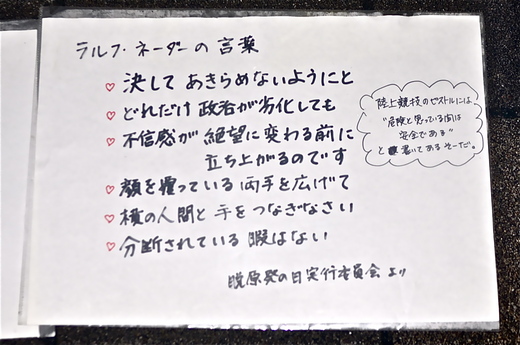 ラルフ・ネーダーの言葉
♡ 決して あきらめないようにと
♡ どれだけ 政治が劣化しても
♡ 不信感が 絶望に変わる前に
立ち上がるのです
♡ 顔を覆っている 両手を広げて
♡ 横の人間と 手をつなぎなさい
♡ 分断されている 暇はない
脱原発の日実行委員会 より
陸上競技のピストルには
"危険と思っている間は
安全である"
と 書いてあるそーだ。